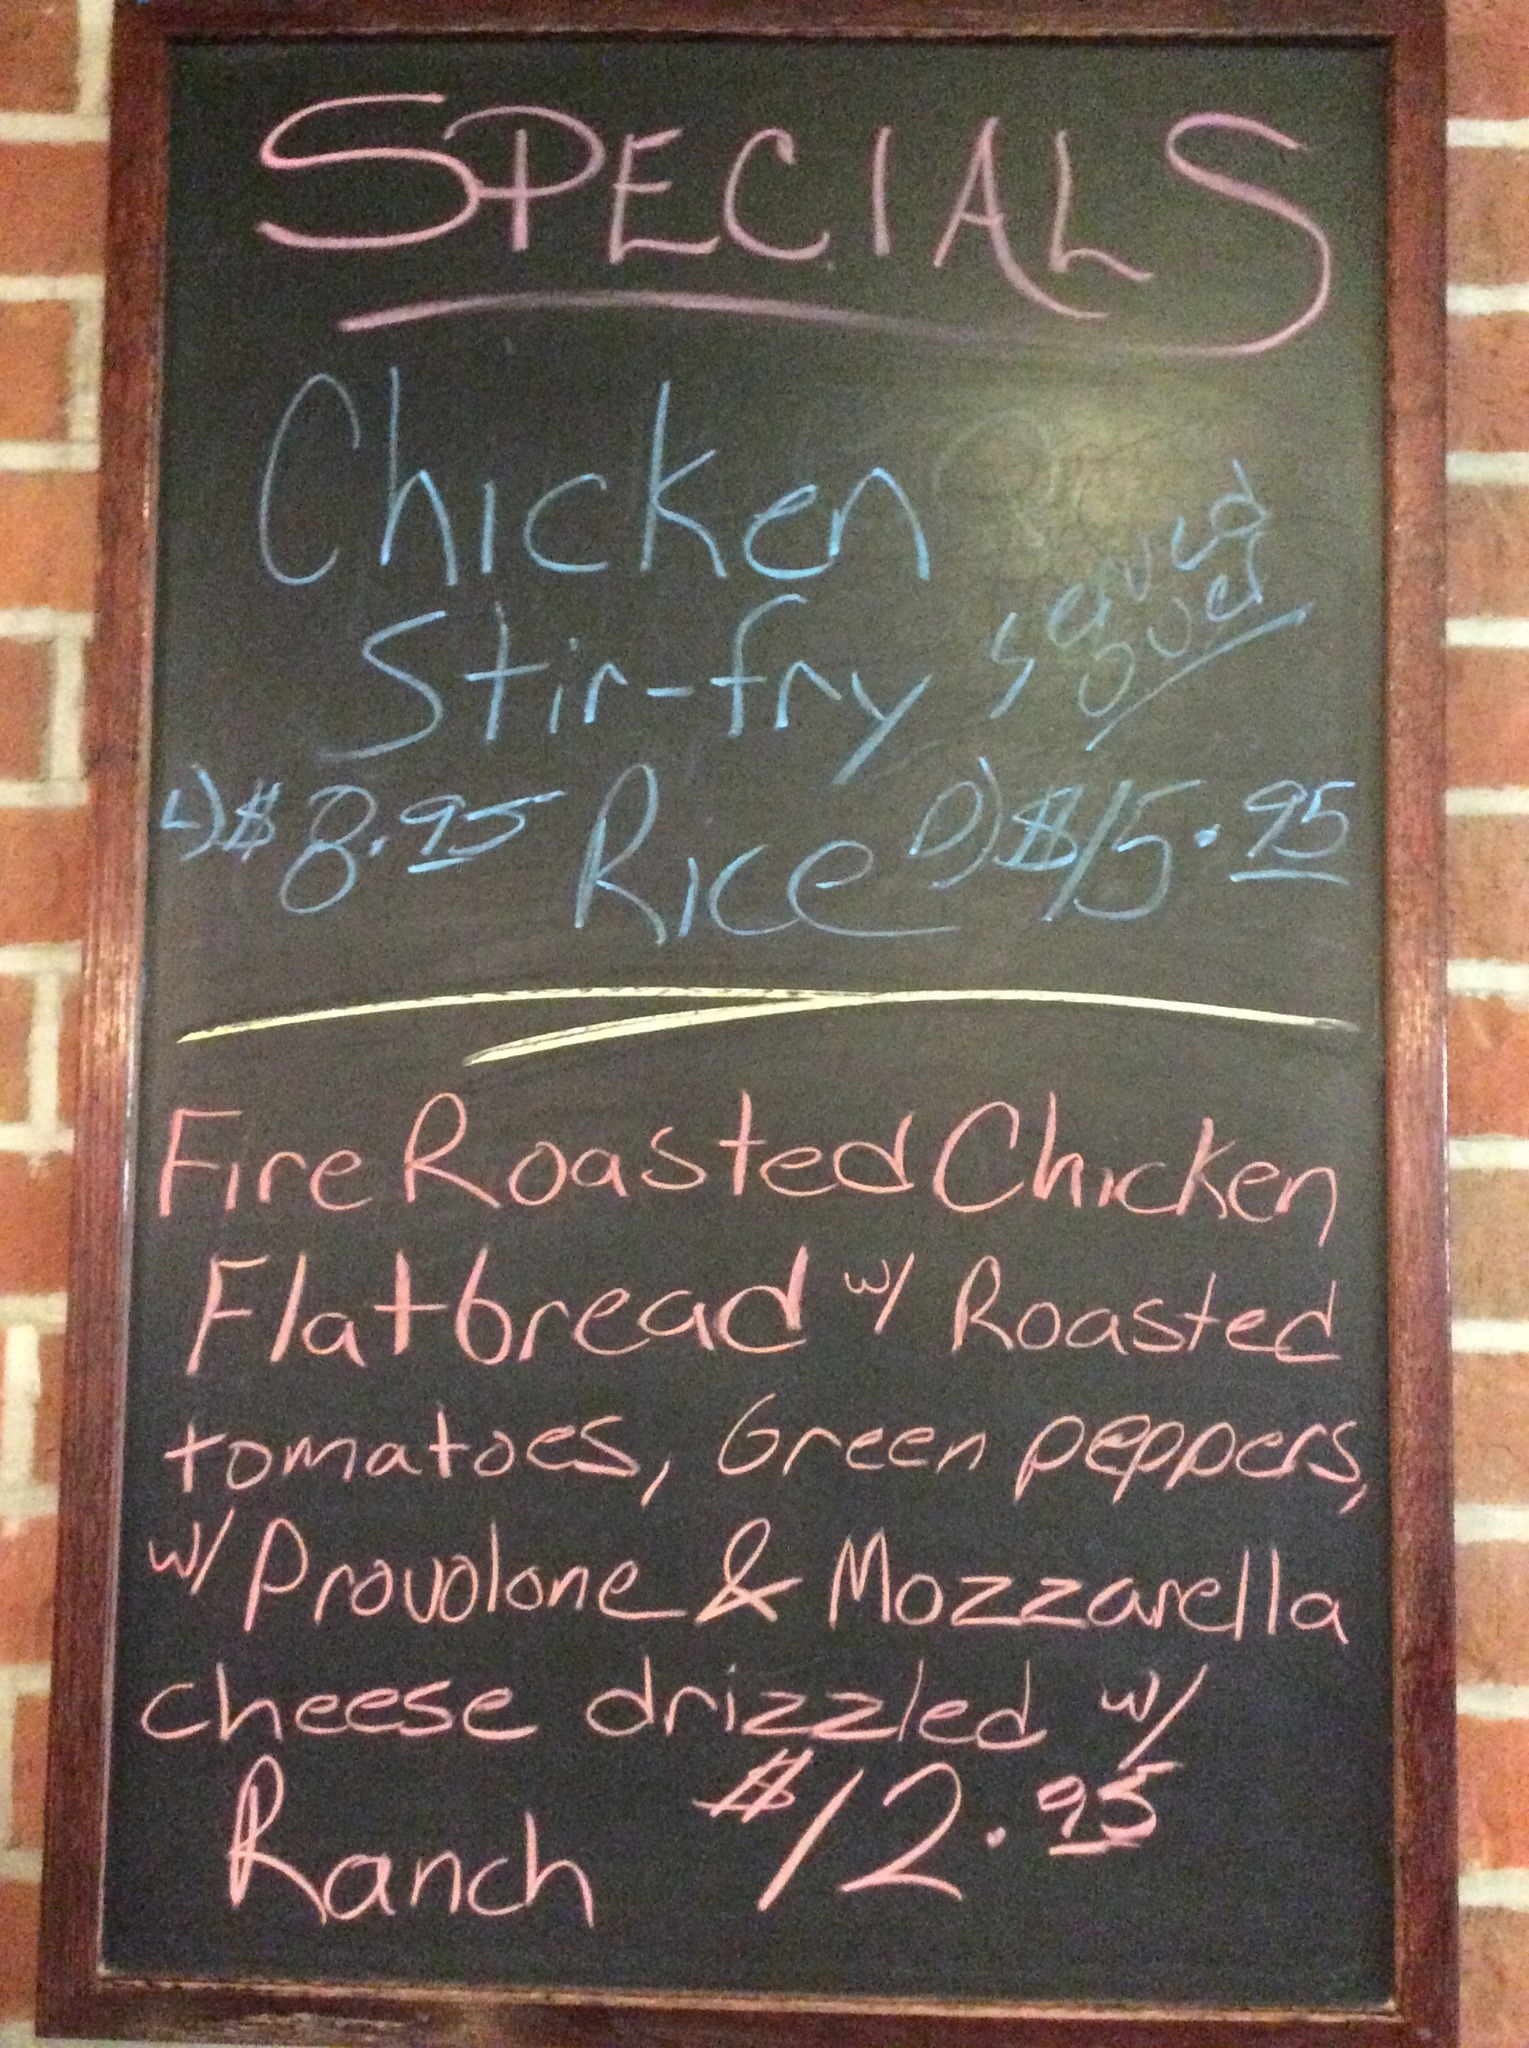 SPECIALS
Chicken
Stir-fry served
over
L) $8.95 Rice D) $15.95
Fire Roasted Chicken
Flatbread w/ Roasted
tomatoes, Green peppers,
w/ Provolone & Mozzarella
cheese drizzled w/
Ranch $12.95